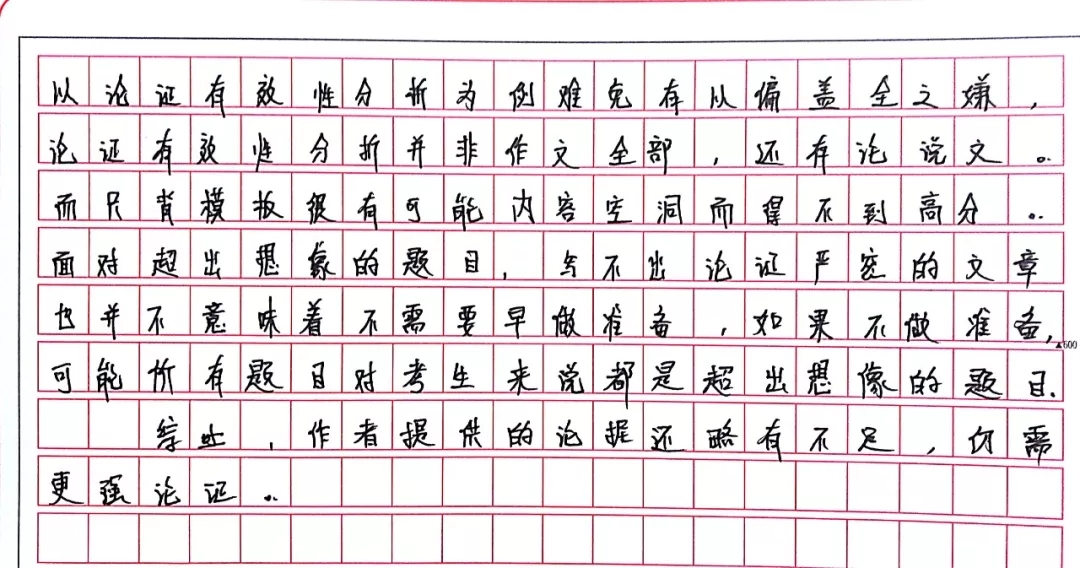 以论证有效性分析为例难免存以偏盖全之嫌，
论证有效性分析并非作文全部，还存论说文。
而只背模板很有可能内容空洞而得不到高分。
面对超出想象的题目，写不出论证严密的文章
也并不意味着不需要早做准备，如果不做准备，
▲600
可能所有题目对考生来说都是超出想像的题目.
综上，作者提供的论据还略有不足，仍需
更强论证。